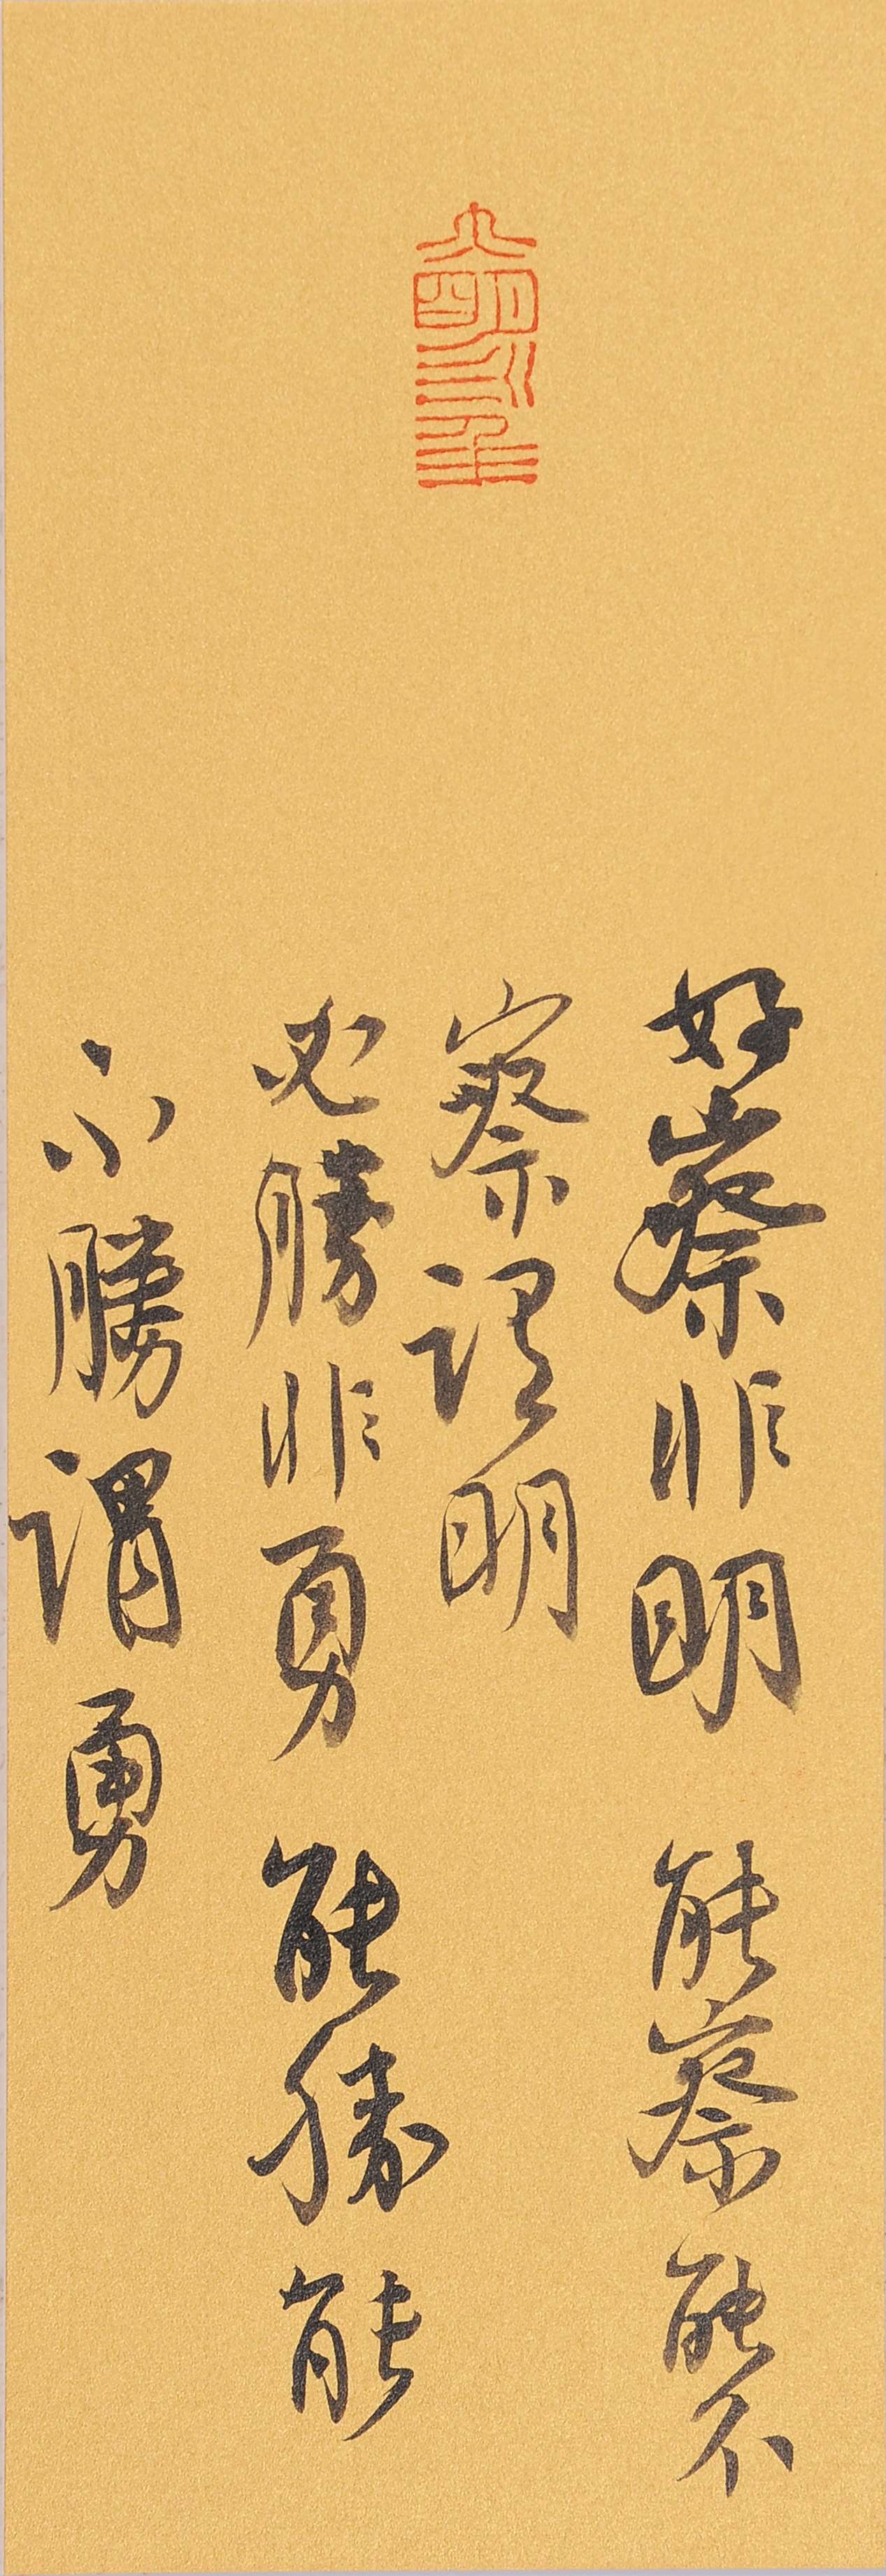 好察非明 能察能不
察謂明
必勝非勇 能勝能
不勝謂勇